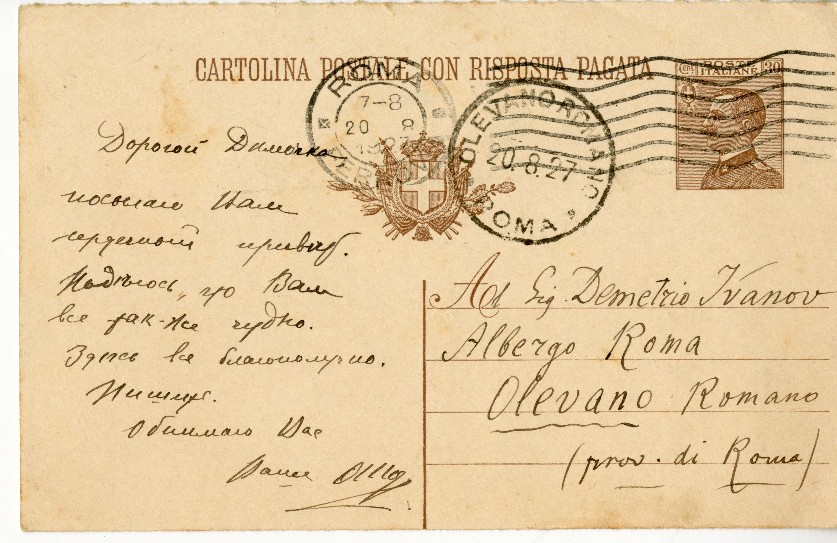 CARTOLINA POSTALE CON RISPOSTA PAGATA
POSTE ITALIANE 30
ROMA
7-8
20 8
1927
OLEVANO ROMANO
20.8.27
ROMA
Дорогой Димочка,
посылаю Вам
сердечный привѣт.
Надѣюсь, что Вам
все так-же чудно.
Здесь все благополучно.
Пишите.
Обнимаю Вас
Ad Sig. Demetrio Ivanov
Albergo Roma
Olevano Romano
(prov. di Roma)